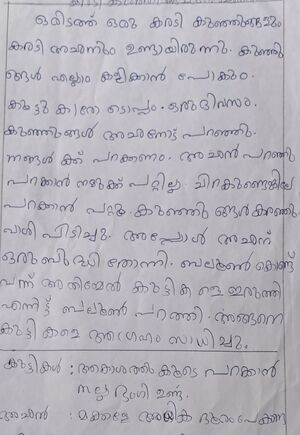 ഒരിടത്ത് ഒരു കരടി കുഞ്ഞുങ്ങളും
കരടി അച്ഛനും ഉണ്ടായിരുന്നു. കുഞ്ഞു
ങ്ങൾ എല്ലാം കളിക്കാൻ പോകും.
കൂട്ടുകാരോടൊപ്പം. ഒരുദിവസം.
കുഞ്ഞുങ്ങൾ അച്ഛനോട് പറഞ്ഞു.
ഞങ്ങൾ ക്ക് പറക്കണം. അച്ഛൻ പറഞ്ഞു
പറക്കാൻ നമുക്ക് പറ്റില്ലാ ചിറകുണ്ടെങ്കിലേ
പറക്കാൻ പറ്റൂ. കുഞ്ഞു ങ്ങൾ കരഞ്ഞു
വാശി പിടിച്ചു. അപ്പോൾ അച്ഛന്
ഒരു ബുദ്ധി തോന്നി. ബലൂൺ കൊണ്ട്
വന്ന് അതിയേൽ കുട്ടിക ളെ ഇരുത്തി
എന്നിട്ട് ബലൂൺ പറത്തി. അങ്ങനെ
കുട്ടി കളെ ആഗ്രഹം സാധിച്ചു.
കുട്ടികൾ : ആകാശത്തു കൂടെ പറക്കാൻ
നല്ല ഭംഗി ഉണ്ട്.
അച്ഛൻ : മക്കളെ അധിക ദൂരം പോകണ്ട